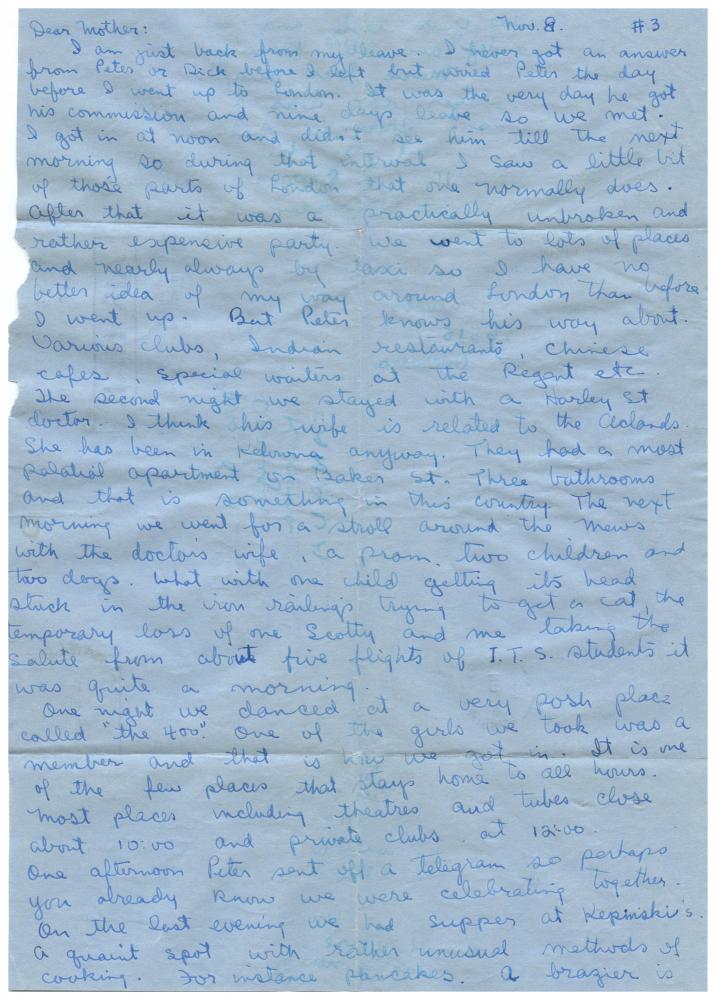 Dear Mother: Nov. 8. #3
I am just back from my leave. I never got an answer
from Peter or Dick before I left but wired Peter the day
before I went up to London. It was the very day he got
his commission and nine days leave so we met.
I got in at noon and didn't see him till the next
morning so during that interval I saw a little bit
of those parts of London that one normally does.
After that it was a practically unbroken and
rather expensive party. We went to lots of places
and nearly always by taxi so I have no
better idea of my way around London than before
I went up. But Peter knows his way about.
Various clubs, Indian restaurants, Chinese
cafes, special waiters at the Regent etc.
The second night we stayed with a Harley St
doctor. I think his wife is related to the Aclands.
She has been in Kelowna anyway. They had a most
palatial apartment on Baker St. Three bathrooms
and that is something in this country. The next
morning we went for a stroll around the mews
with the doctor's wife, a pram, two children and
two dogs. What with one child getting its head
stuck in the iron railings trying to get a cat, the
temporary loss of one Scotty and me taking the
salute from about five flights of I.T.S. students it
was quite a morning.
One night we danced at a very posh place
called "the 400". One of the girls we took was a
member and that is how we got in. It is one
of the few places that stays home to all hours.
Most places including theatres and tubes close
about 10:00 and private clubs at 12:00.
One afternoon Peter sent off a telegram so perhaps
you already know we were celebrating together.
On the last evening we had supper at Kepinski's.
A quaint spot with rather unusual methods of
cooking. For instance pancakes. A brazier is